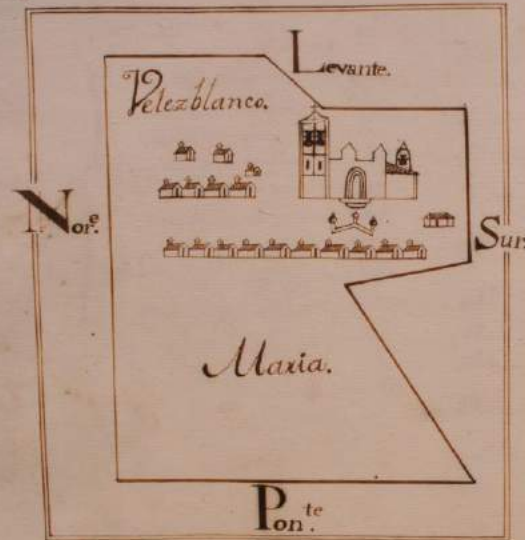 Levante.
Velezblanco.
Nor.e
Sur.
Maria.
Pon.te